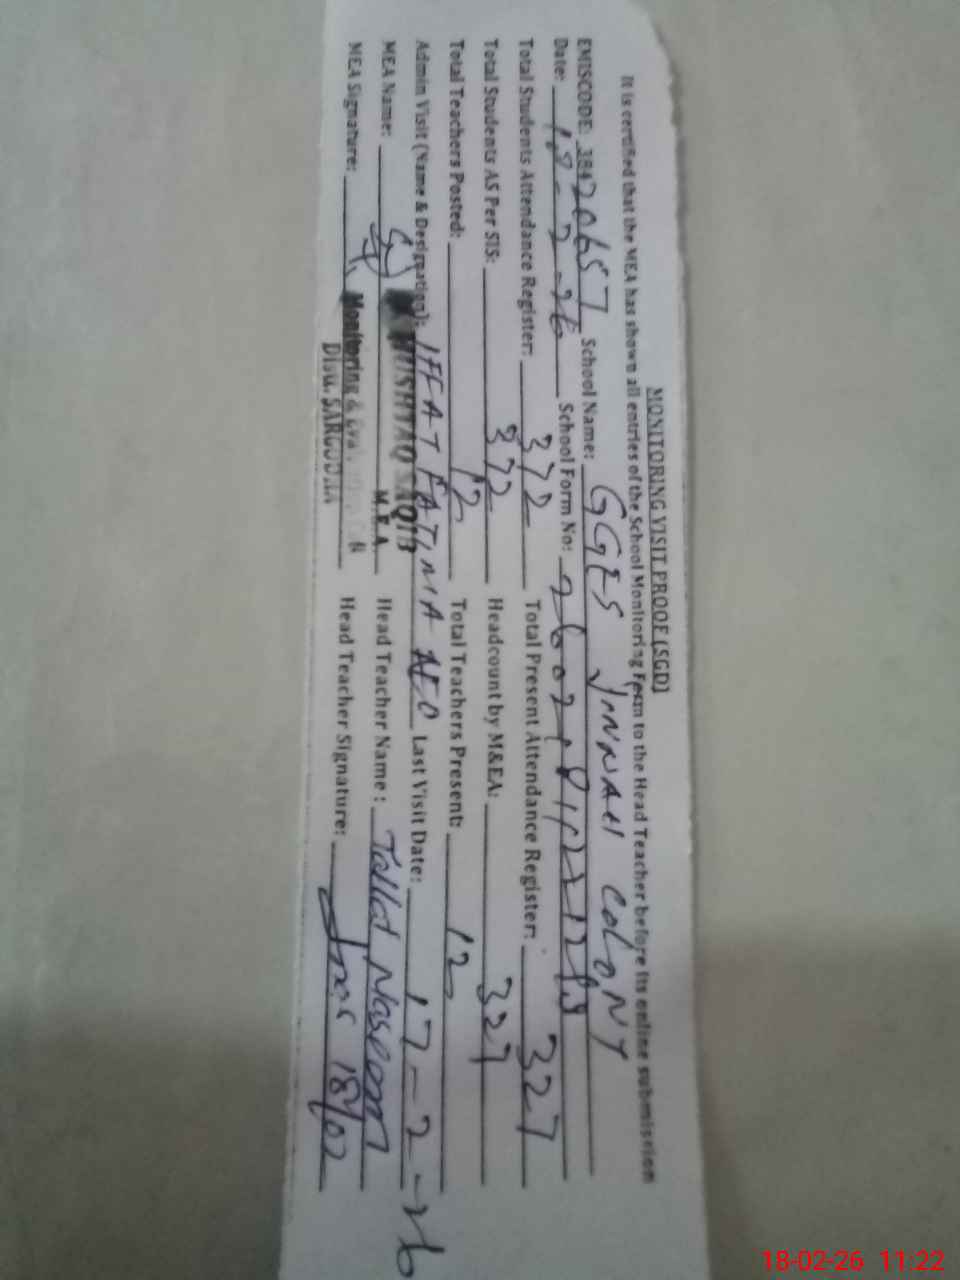 MONITORING VISIT PROOF (SGD)
It is certified that the MEA has shown all entries of the School Monitoring Form to the Head Teacher before its online submission
EMISCODE: 38420657 School Name: GGES JINNAH COLONY
Date: 18-2-26 School Form No:
Total Students Attendance Register: 372 Total Present Attendance Register: 327
Total Students AS Per SIS: 372 Headcount by M&EA: 327
Total Teachers Posted: 12 Total Teachers Present: 12
Admin Visit (Name & Designation): IFFAT FATIMA AEO Last Visit Date: 17-2-26
MEA Name: MUSHTAQ SAQIB M.E.A Head Teacher Name: Tallat Naseem
MEA Signature: Monitoring & Head Teacher Signature: 18/02
SARGODHA
18-02-26 11:22